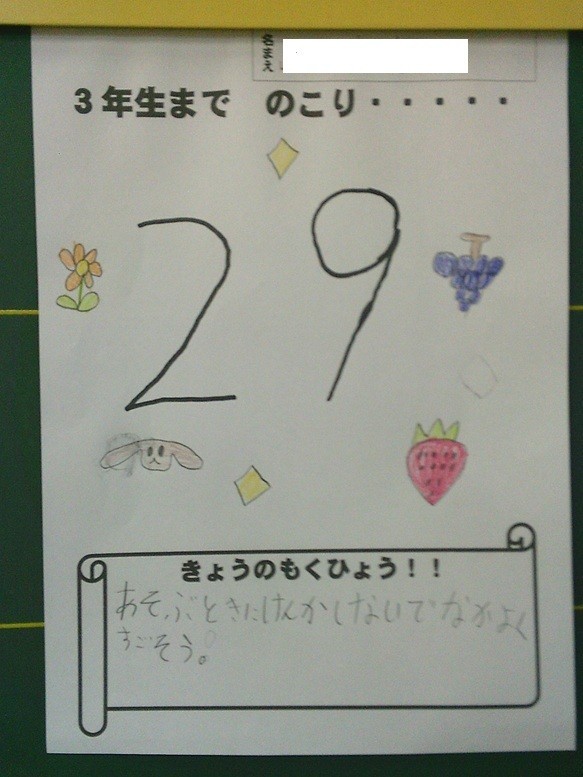 名まえ
3年生まで のこり・・・・・
29
きょうのもくひょう！！
あそぶときにけんかしないでなかよく
すごそう。